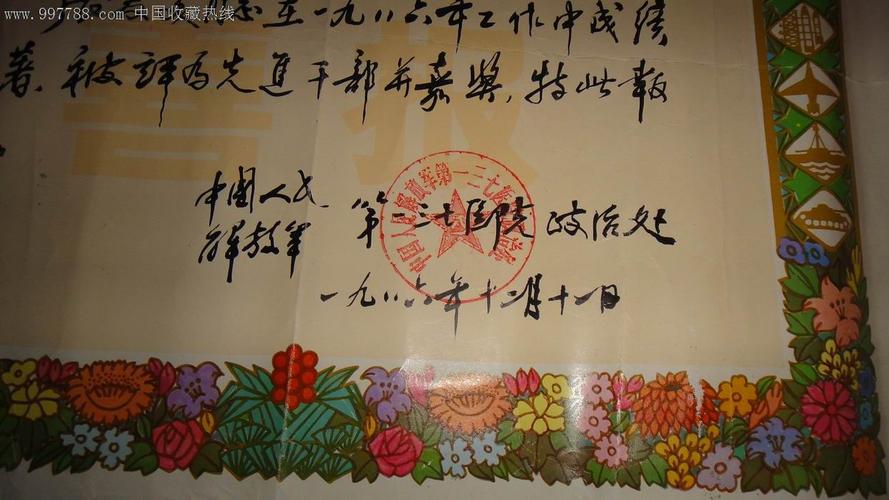 www.997788.com 中国收藏热线
志在一九八六年工作中成绩
著，被評为先進干部并嘉奖，特此報
喜报
中國人民
解放军 第一三七医院政治处
中国人民解放军第一三七医院政治处
一九八六年十二月十一日